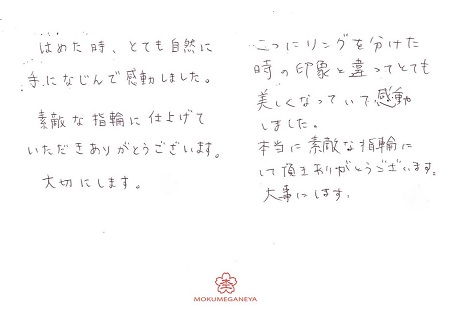 はめた時、とても自然に
手になじんで感動しました。
素敵な指輪に仕上げて
いただきありがとうございます。
大切にします。
二つにリングを分けた
時の印象と違ってとても
美しくなっていて感動
しました。
本当に素敵な指輪に
して頂きありがとうございます。
大事にします。
MOKUMEGANEYA